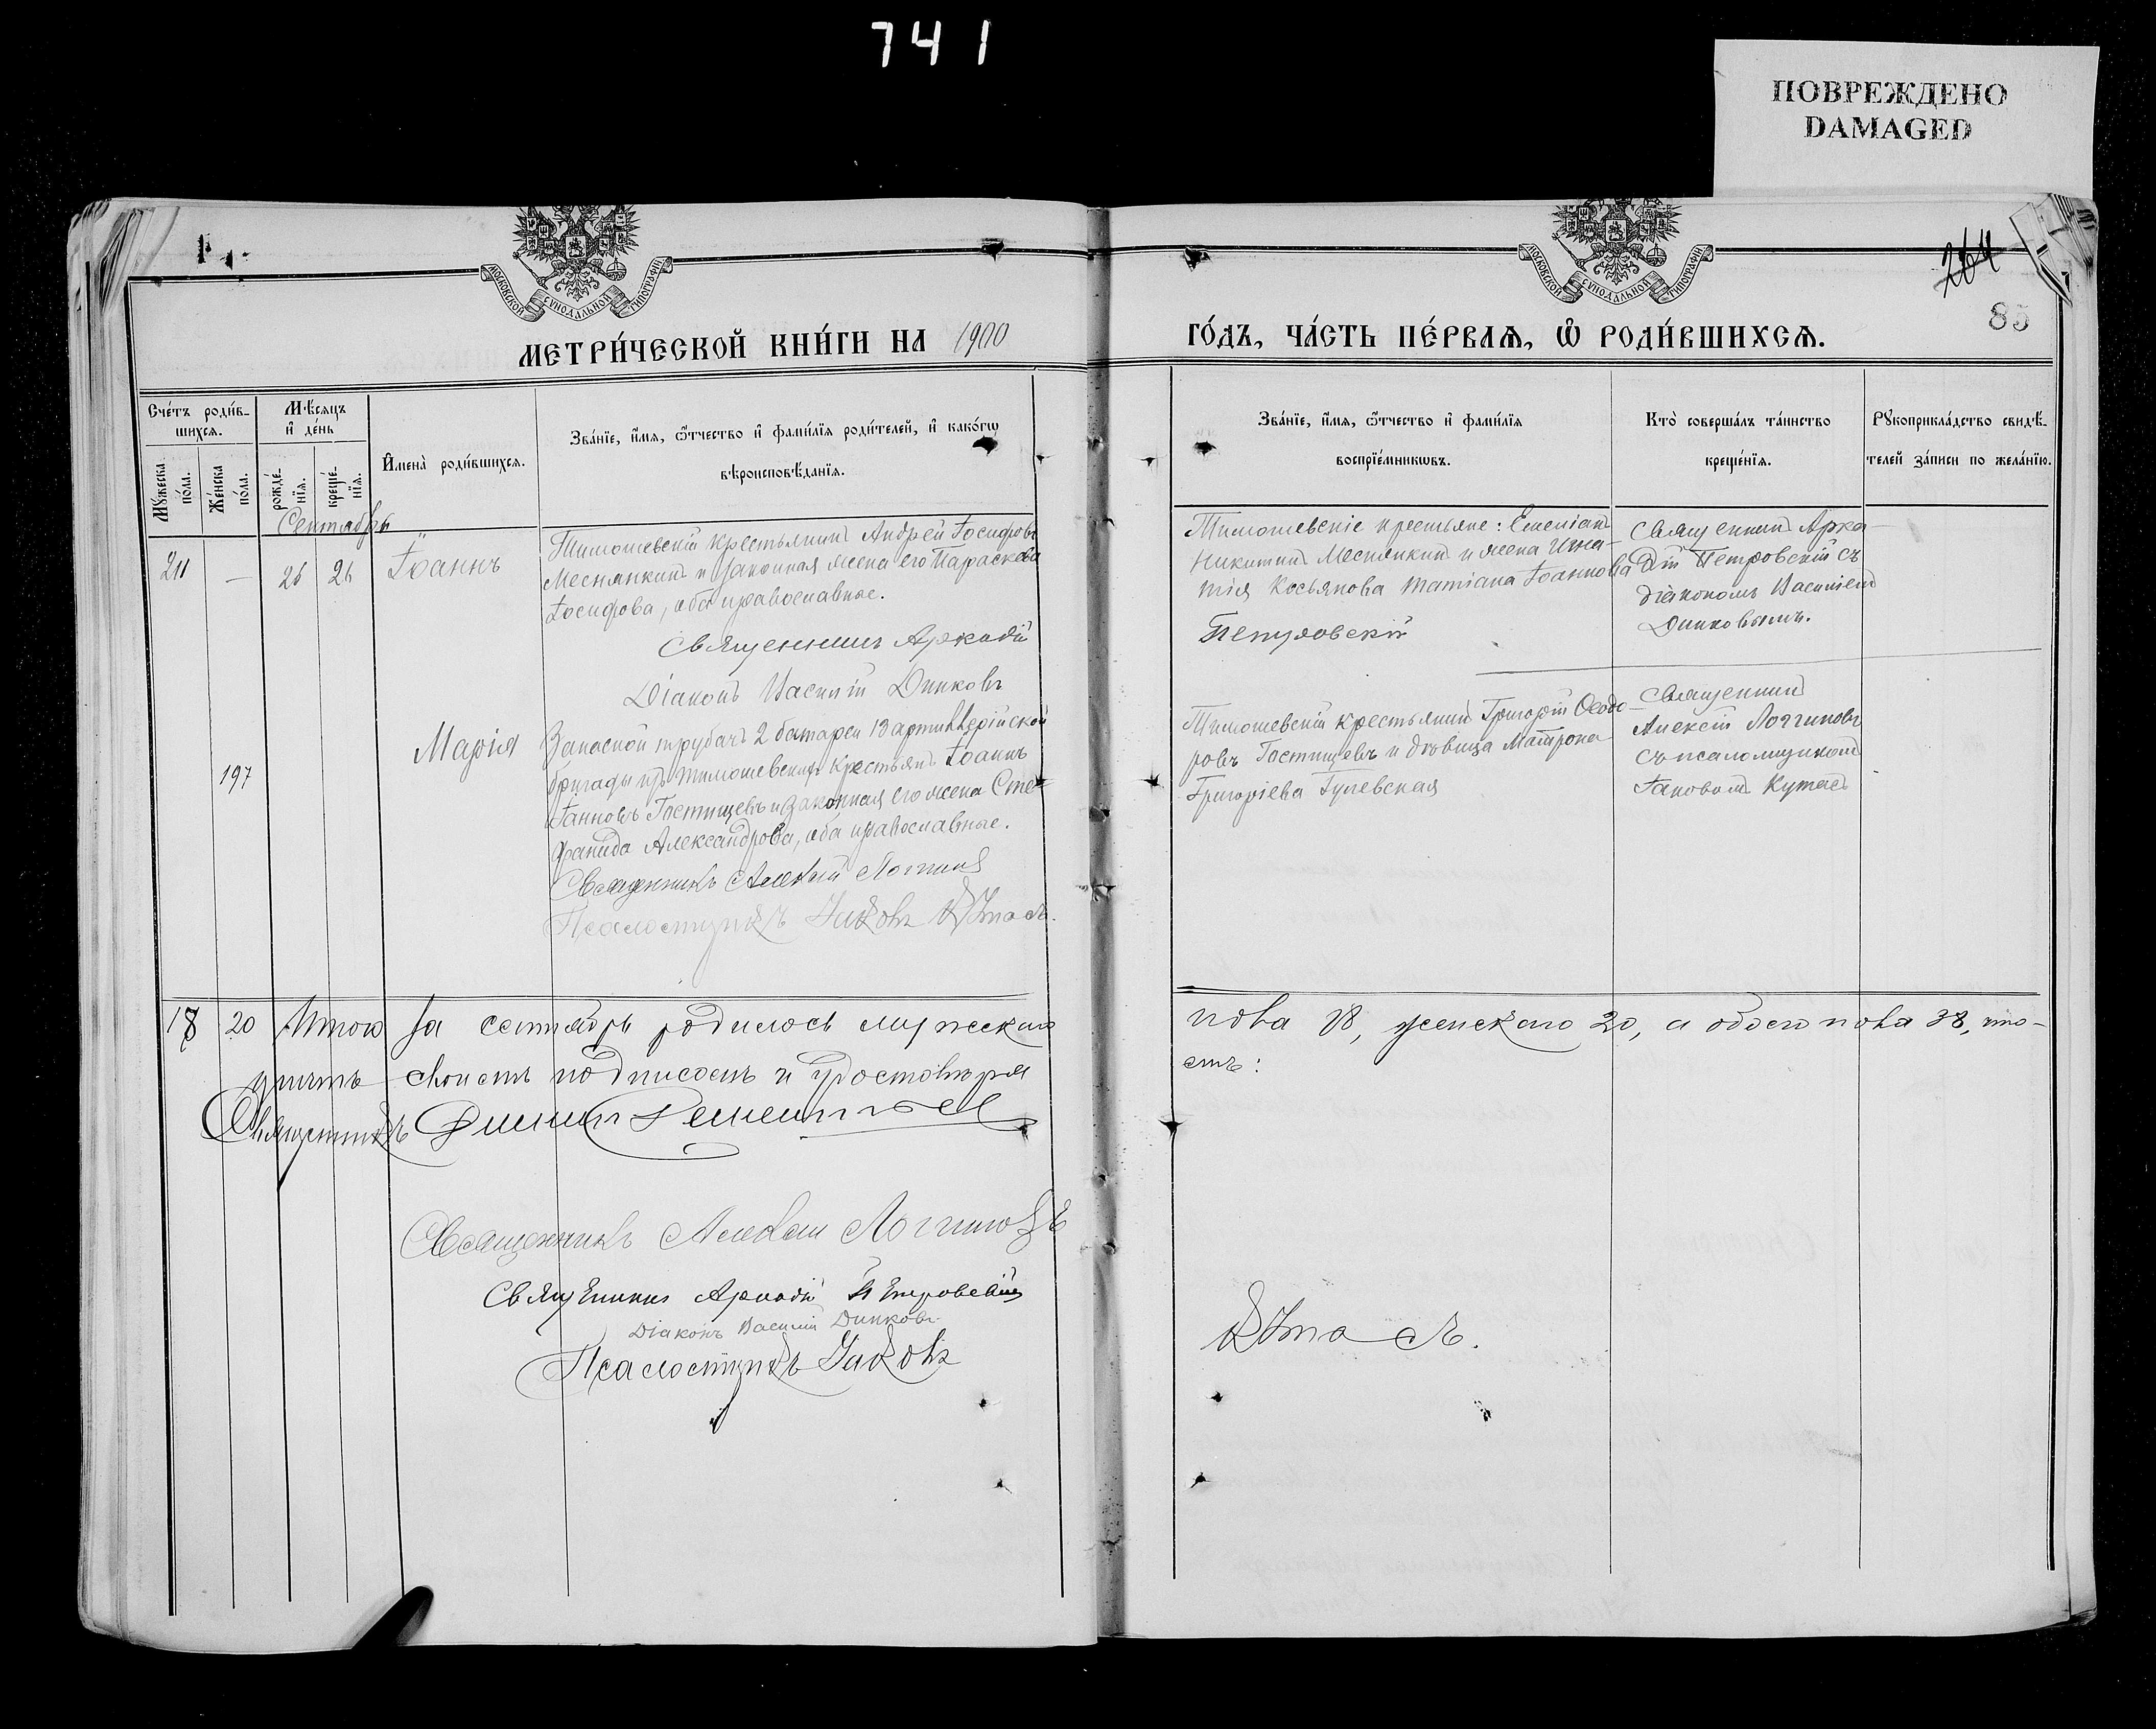 741
ПОВРЕЖДЕНО
DAMAGED
МОСКОВСКОЙ СѴНОДАЛЬНОЙ ТИПОГРАФІИ
МОСКОВСКОЙ СѴНОДАЛЬНОЙ ТИПОГРАФІИ
264
85
МЕТРИ́ЧЕСКОЙ КНИ́ГИ НА 1900
ГО́ДЪ, ЧА́СТЬ ПЕ́РВАѦ, Ѡ҆ РОДИ́ВШИХСѦ.
Сче́тъ роди́в-
шихсѧ.
Мꙋ́жеска по́ла.
Же́нска по́ла.
Мѣ́сѧцъ
и҆ де́нь
рожде́-
нїѧ.
креще́-
нїѧ.
И҆мена̀ роди́вшихсѧ.
Зва́нїе, и҆́мѧ, ѻ҆́тчество и҆ фамѝлїѧ роди́телей, и҆ како́гѡ
вѣроисповѣ́данїѧ.
Зва́нїе, и҆́мѧ, ѻ҆́тчество и҆ фамѝлїѧ
воспрїе́мникѡвъ.
Кто̀ соверша́лъ та́инство
креще́нїѧ.
Рꙋкоприкла́дство свидѣ́-
телей за́писи по жела́нїю.
Сентябрь
211 — 26 26 Іоаннъ
Тимошевскій крестьянинъ Андрей Іосифовъ
Меснянкинъ и законная жена его Параскева
Іосифова, оба православные.
Священникъ Аркадій
Діаконъ Василій Динковъ
Тимошевскіе крестьяне: Емеліанъ
Никитинъ Меснянкинъ и жена Игна-
тія Косьянова Татіана Іоаннова
Петровскій
Священникъ Арка-
дій Петровскій съ
діакономъ Василіемъ
Динковымъ.
197 Марія
Запасной трубачъ 2 батареи 13 артиллерійской
бригады изъ Тимошевскихъ крестьянъ Іоаннъ
Іанновъ Гостищевъ и законная его жена Сте-
фанида Александрова, оба православные.
Священникъ Алексій Логгинов
Псаломщикъ Іаковъ Кутасъ.
Тимошевскій крестьянинъ Григорій Ѳеодо-
ровъ Гостищевъ и дѣвица Матрона
Григоріева Гулевская
Священникъ
Алексій Логгиновъ
съ псаломщикомъ
Іаковомъ Кутас
18 20 Итого за сентябрь родилось мужеского
пола 18, женского 20, а обоего пола 38, что-
причтъ своимъ подписомъ и удостовѣря
етъ:
Священникъ
Священникъ Алексій Логгиновъ
Священникъ Аркадій Петровскій
Діаконъ Василій Динковъ
Псаломщикъ Іаковъ
Кутасъ.